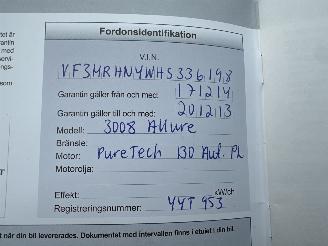 Fordonsidentifikation
V.I.N.
VF3MRHNYWHS336198
Garantin gäller från och med: 171214
Garantin gäller till och med: 201213
Modell: 3008 Allure
Bränsle:
Motor: PureTech 130 Aut. PL
Motorolja:
Effekt: kW/ch
Registreringsnummer: YYT 953
t när din bil levererades. Dokumentet med intervallen finns i etuiet i din bil.